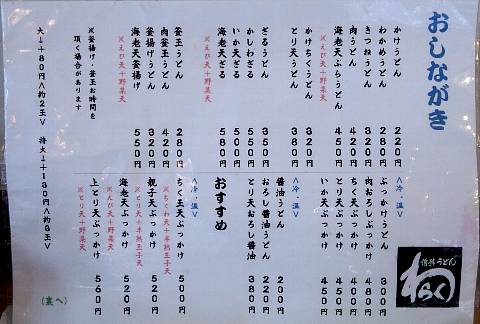 おしながき
かけうどん 220円
わかめうどん 280円
きつねうどん 320円
肉うどん 420円
海老天ぷらうどん 450円
※えび天+野菜天
かけちくうどん 320円
とり天うどん 380円
ざるうどん 300円
かしわざる 550円
いか天ざる 500円
海老天ざる 580円
※えび天+野菜天
釜玉うどん 280円
肉釜玉うどん 420円
釜揚げうどん 320円
海老天釜揚げ 550円
※えび天+野菜天
※釜揚げ・釜玉お時間を
頂く場合があります
大→+80円<約2玉> 特大→+130円<約3玉>
<冷・温>
ぶっかけうどん 300円
肉おろしぶっかけ 480円
ちく天ぶっかけ 400円
とり天ぶっかけ 450円
いか天ぶっかけ 450円
<冷・温>
醤油うどん 200円
おろし醤油うどん 280円
とり天おろし醤油 380円
おすすめ
<冷・温>
ちく玉天ぶっかけ 500円
※ちくわ天+半熟玉子天
親子天ぶっかけ 520円
※とり天+半熟玉子天
海老天ぶっかけ 520円
※えび天+野菜天
上とり天ぶっかけ 560円
※とり天+野菜天
(裏へ)
うどん
わらく